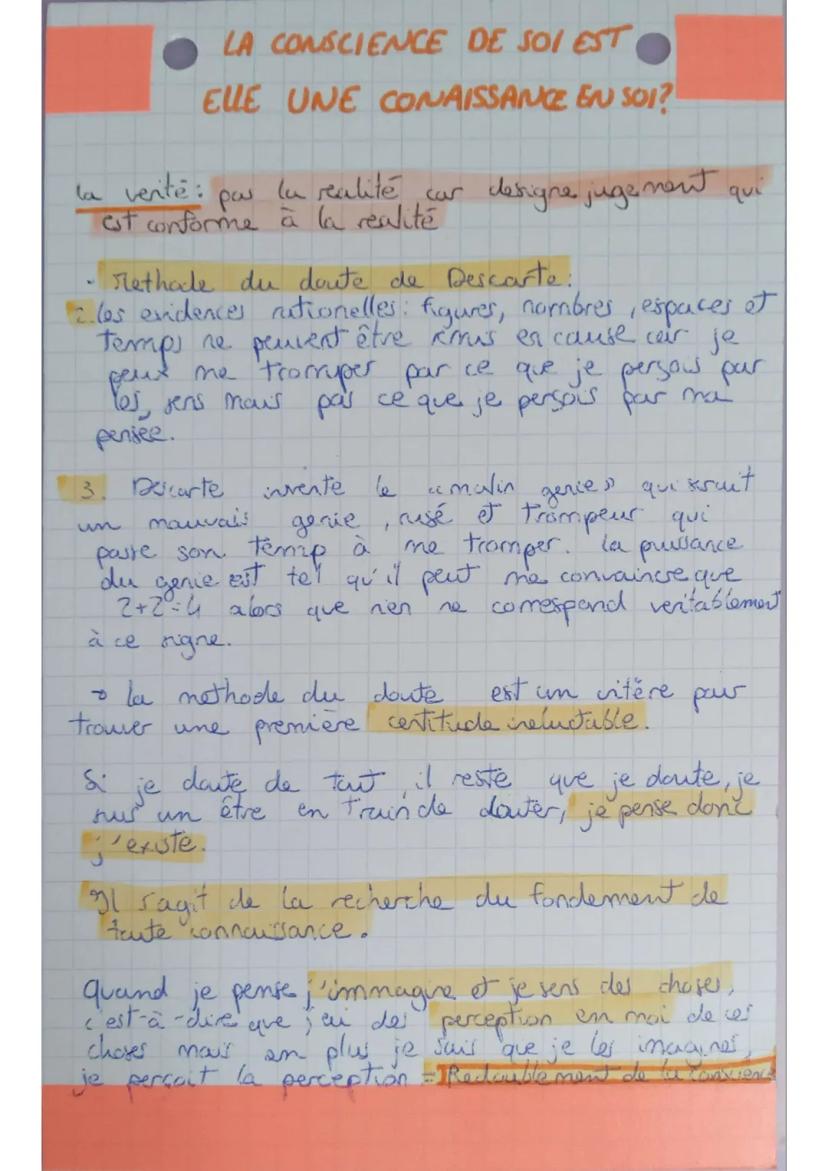 LA CONSCIENCE DE SOI EST
ELLE UNE CONAISSANCE EN SOI?
la verité: pas la realité car designe jugement qui
est conforme à la realité
- Methode du doute de Descarte:
2. les evidences rationelles: figures, nombres, espaces et
temps ne peuvent être rmis en cause car je
peux me tromper par ce que je persois par
les sens mais pas ce que je persois par ma
pensée.
3. Descarte invente le "malin genie" qui srait
un mauvais genie, rusé et trompeur qui
passe son temp à me tromper. la puissance
du genie est tel qu'il peut me convaincre que
2+2=4 alors que rien ne correspond veritablement
à ce signe.
→ la methode du doute est un critère pour
trouver une première certitude ineluctable.
Si je doute de tout, il reste que je doute, je
suis un être en train de douter, je pense donc
j'existe.
Il s'agit de la recherche du fondement de
toute connaissance.
Quand je pense j'immagine et je sens des choses,
c'est-à-dire que j'ai des perception en moi de ces
choses mais en plus je sais que je les imagines,
je perçoit la perception = Redoublement de la conscience